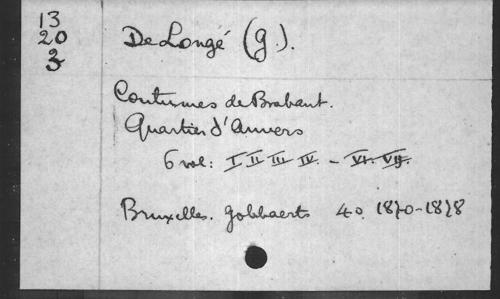 13
20
3
De Longé (G.).
Coutumes de Brabant.
Quartier d'Anvers
6 vol: I II III IV. - VI. VII.
Bruxelles. Gobbaerts 4o. 1870-1878